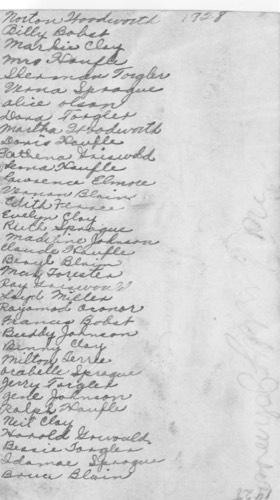 Norton Woodworth 1928
Billy Bobst
Marbie Clay
Mrs Haufle
Sherman Torgler
Verna Sprague
Alice Olson
Dona Torgler
Martha Woodworth
Doris Haufle
Griswold
Haufle
Lawrence Elmore
Vernon Blain
Edith Ferree
Evelyn Clay
Ruth Sprague
Madeline Johnson
Claude Haufle
Beryl Blain
May Forester
Ray Griswold
Loyd Miller
Raymond Oconor
Francis Bobst
Buddy Johnson
Binny Clay
Milton Ferree
Orabelle Sprague
Jerry Torgler
Gene Johnson
Ralph Haufle
Neil Clay
Harold Griswold
Bessie Torgler
Idamae Sprague
Bruce Blain